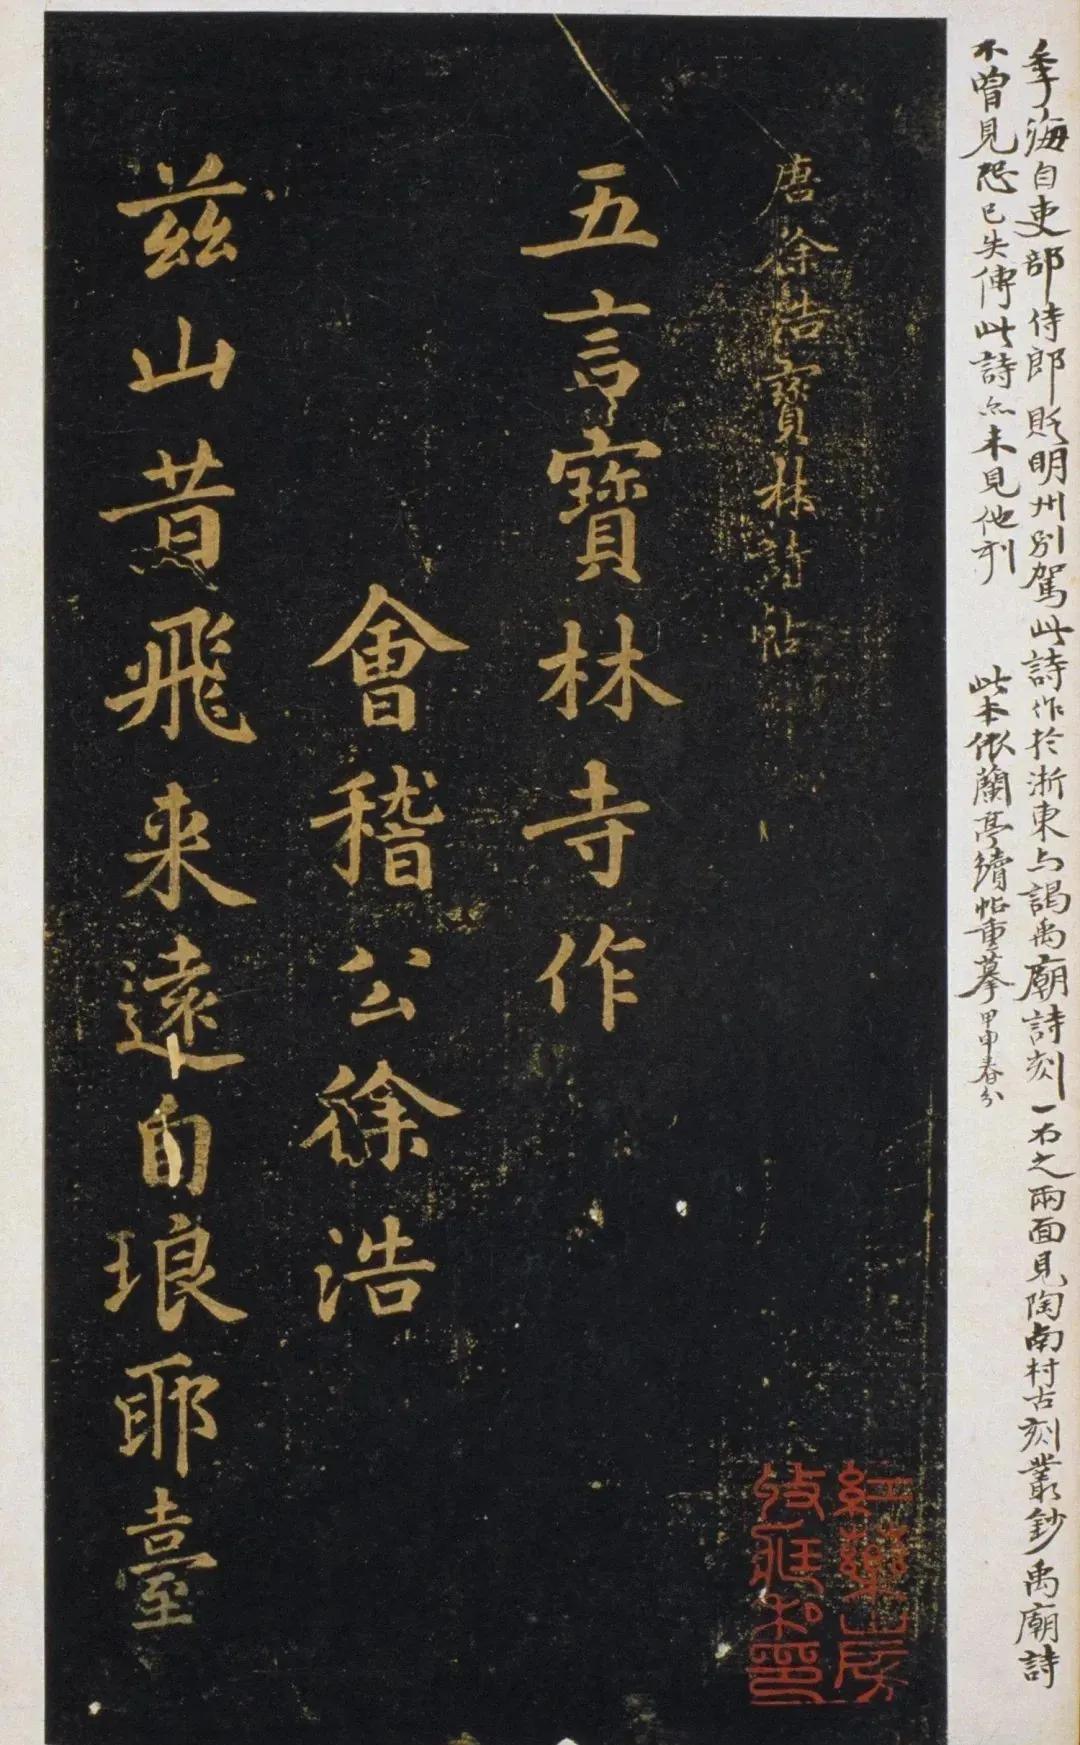 季海自吏部侍郎貶明州別駕此詩作於浙東与謁禹廟詩刻一石之兩面見陶南村古刻叢鈔禹廟詩
不曾見恐已失傳此詩亦未見他刊 此本依蘭亭續帖重摹甲申春分
唐徐浩寶林詩帖
紅藥山房
收藏私印
五言寶林寺作
會稽公徐浩
茲山昔飛来遠自琅耶臺